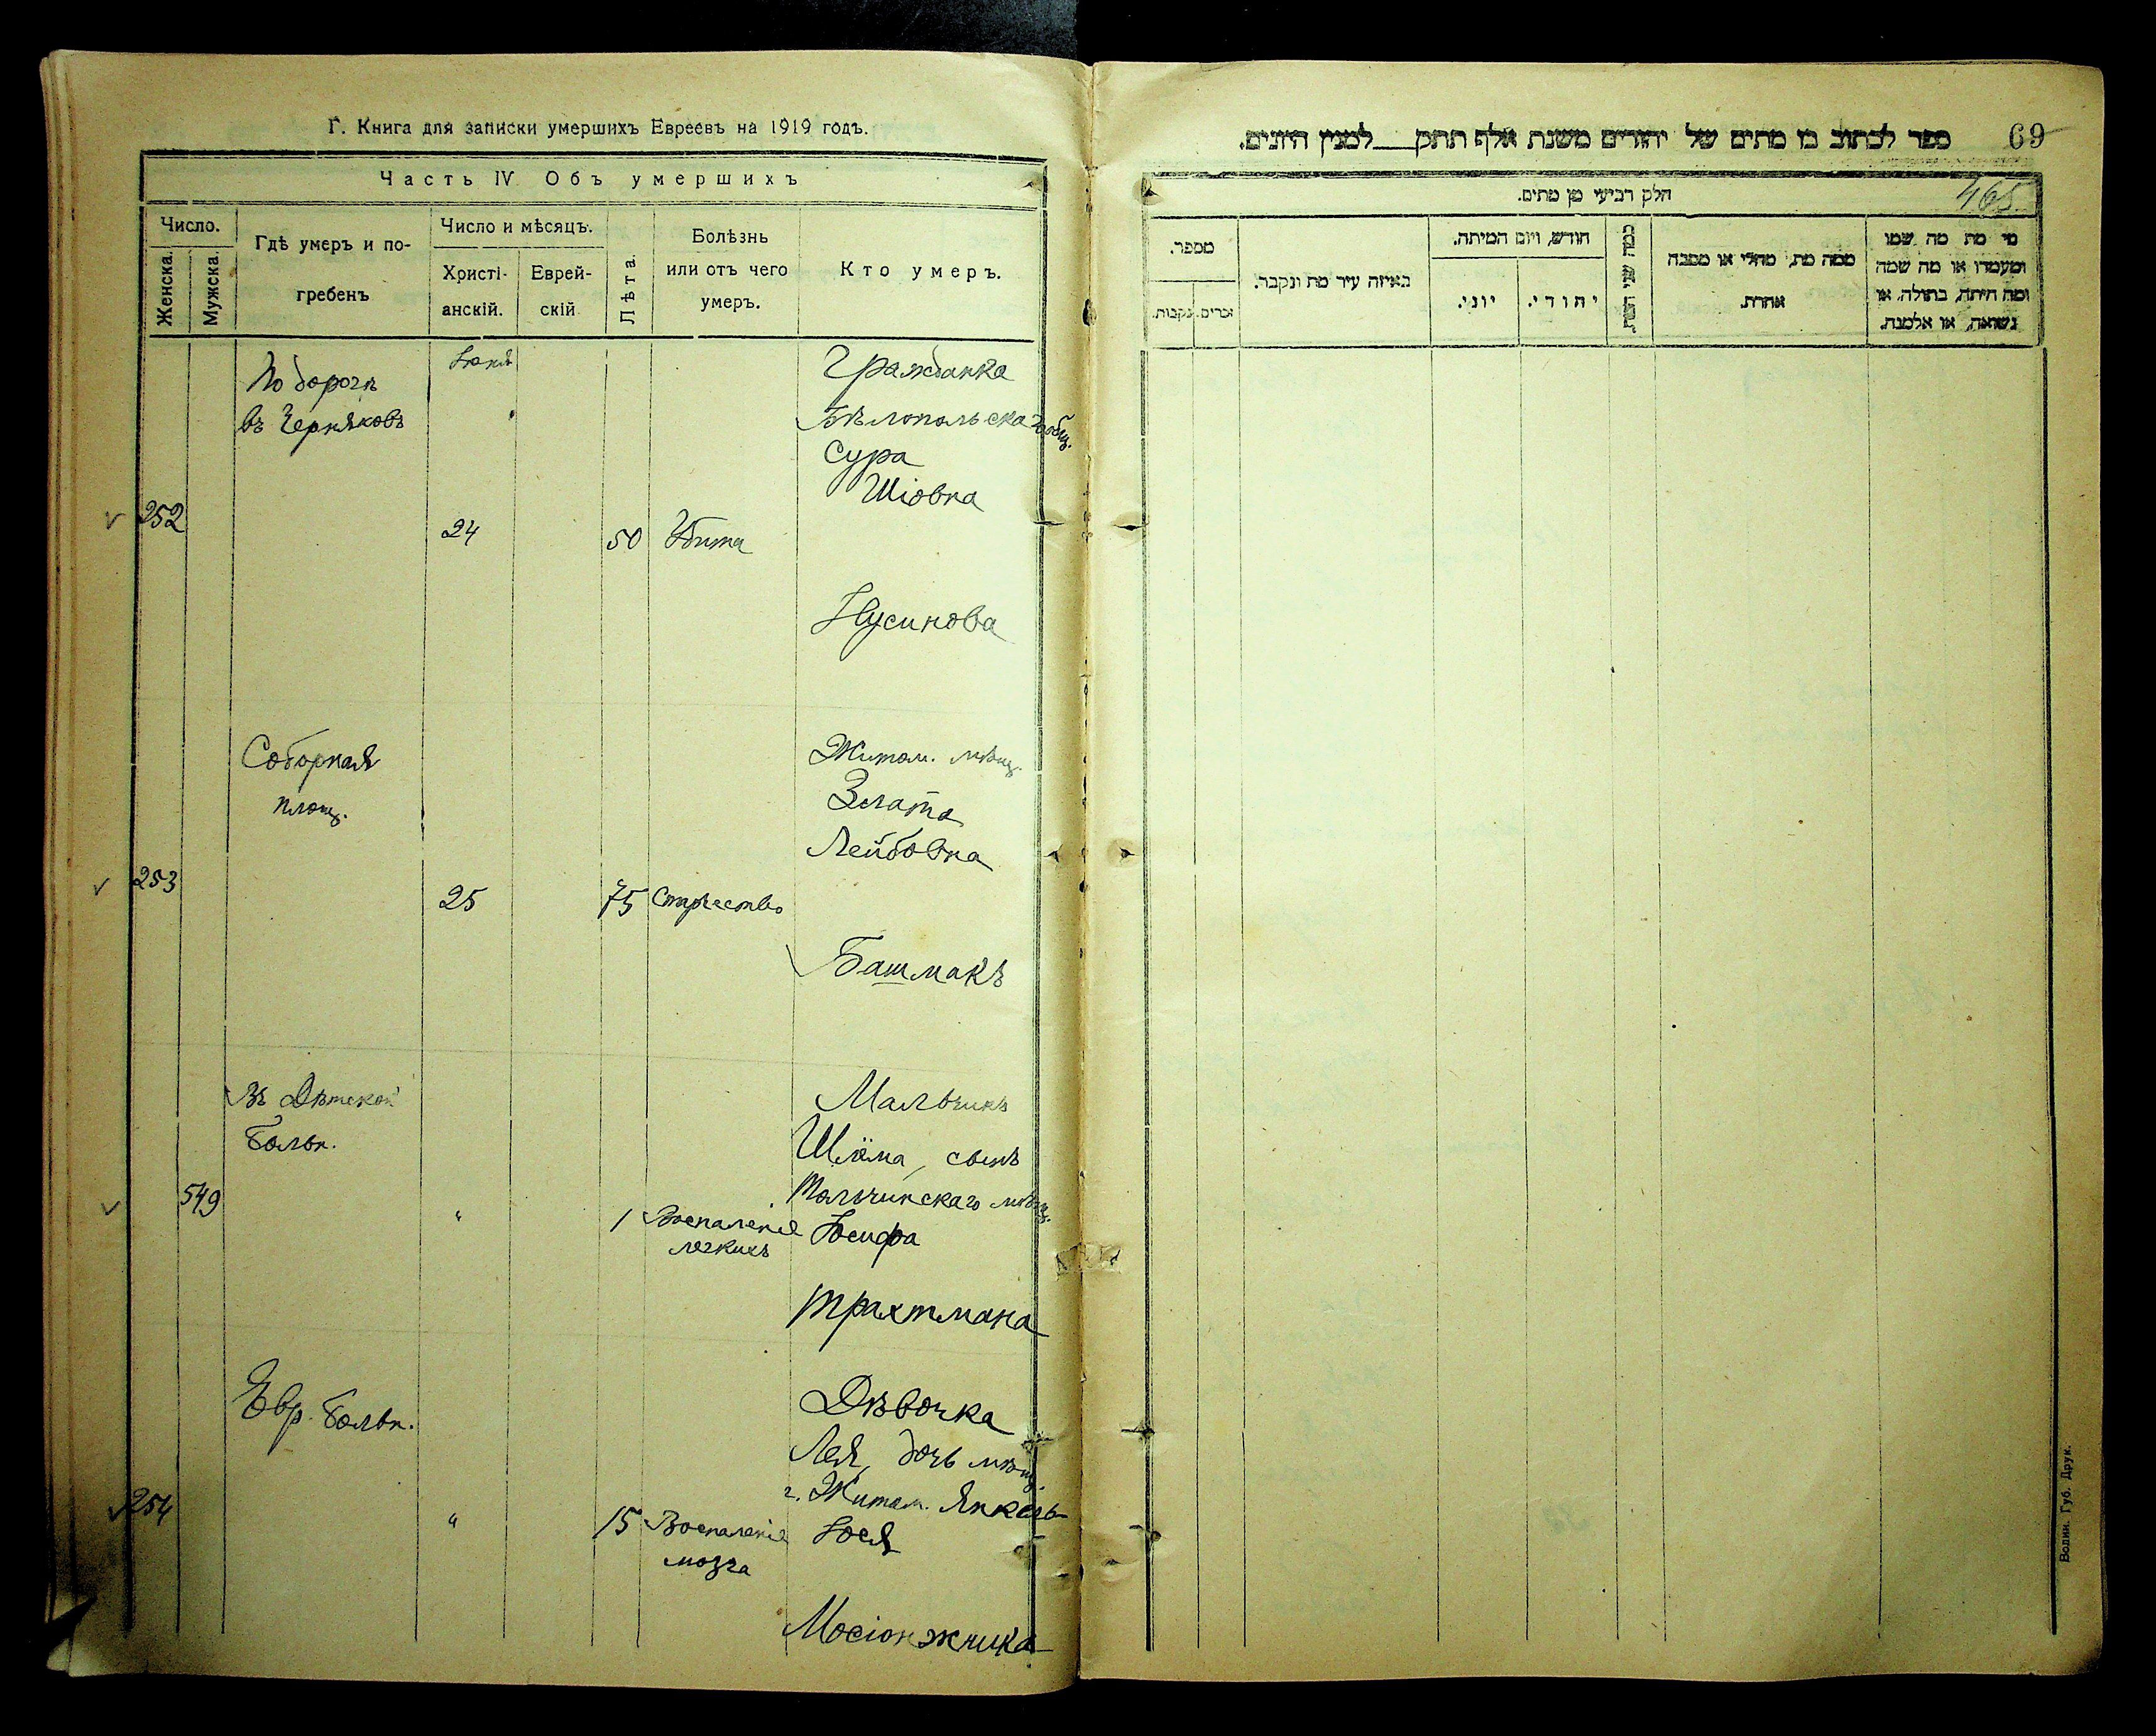 Г. Книга для записки умершихъ Евреевъ на 1919 годъ.
Часть IV Объ умершихъ
Число.
Женска.
Мужска.
Гдѣ умеръ и по-
гребенъ
Число и мѣсяцъ.
Христі-
анскій.
Еврей-
скій
Лѣта.
Болѣзнь
или отъ чего
умеръ.
Кто умеръ.
252
По дорогѣ
въ Черняховъ
Іюня
24
50
Убита
Гражданка
Бѣлопольскаго общ.
Сура
Шіовна
Нусинова
253
Соборная
площ.
25
75
Старчество
Житом. мѣщ.
Злата
Лейбовна
Башмакъ
549
Въ Дѣтской
больн.
"
1
Воспаленіе
легкихъ
Мальчикъ
Шлема, сынъ
мѣщ.
Іосифа
Трахтмана
254
Евр. больн.
"
15
Воспаленіе
мозга
Дѣвочка
Лея, дочь мѣщ.
г. Житом. Янкель-
Іося
Мосіонжника
ספר לכתוב בו מתים של יהודים משנת אלף תתק למנין היונים.
69
465
חלק רביעי מן מתים.
מספר.
זכרים.
נקבות.
באיזה עיר מת ונקבר.
חודש, ויום המיתה.
יוני.
יהודי.
כמה שני המת.
ממה מת, מחלי או מסבה
אחרת.
מי מת מה שמו
ומעמדו או מה שמה
ומה היתה, בתולה, או
נשואה, או אלמנה.
Волин. Губ. Друк.